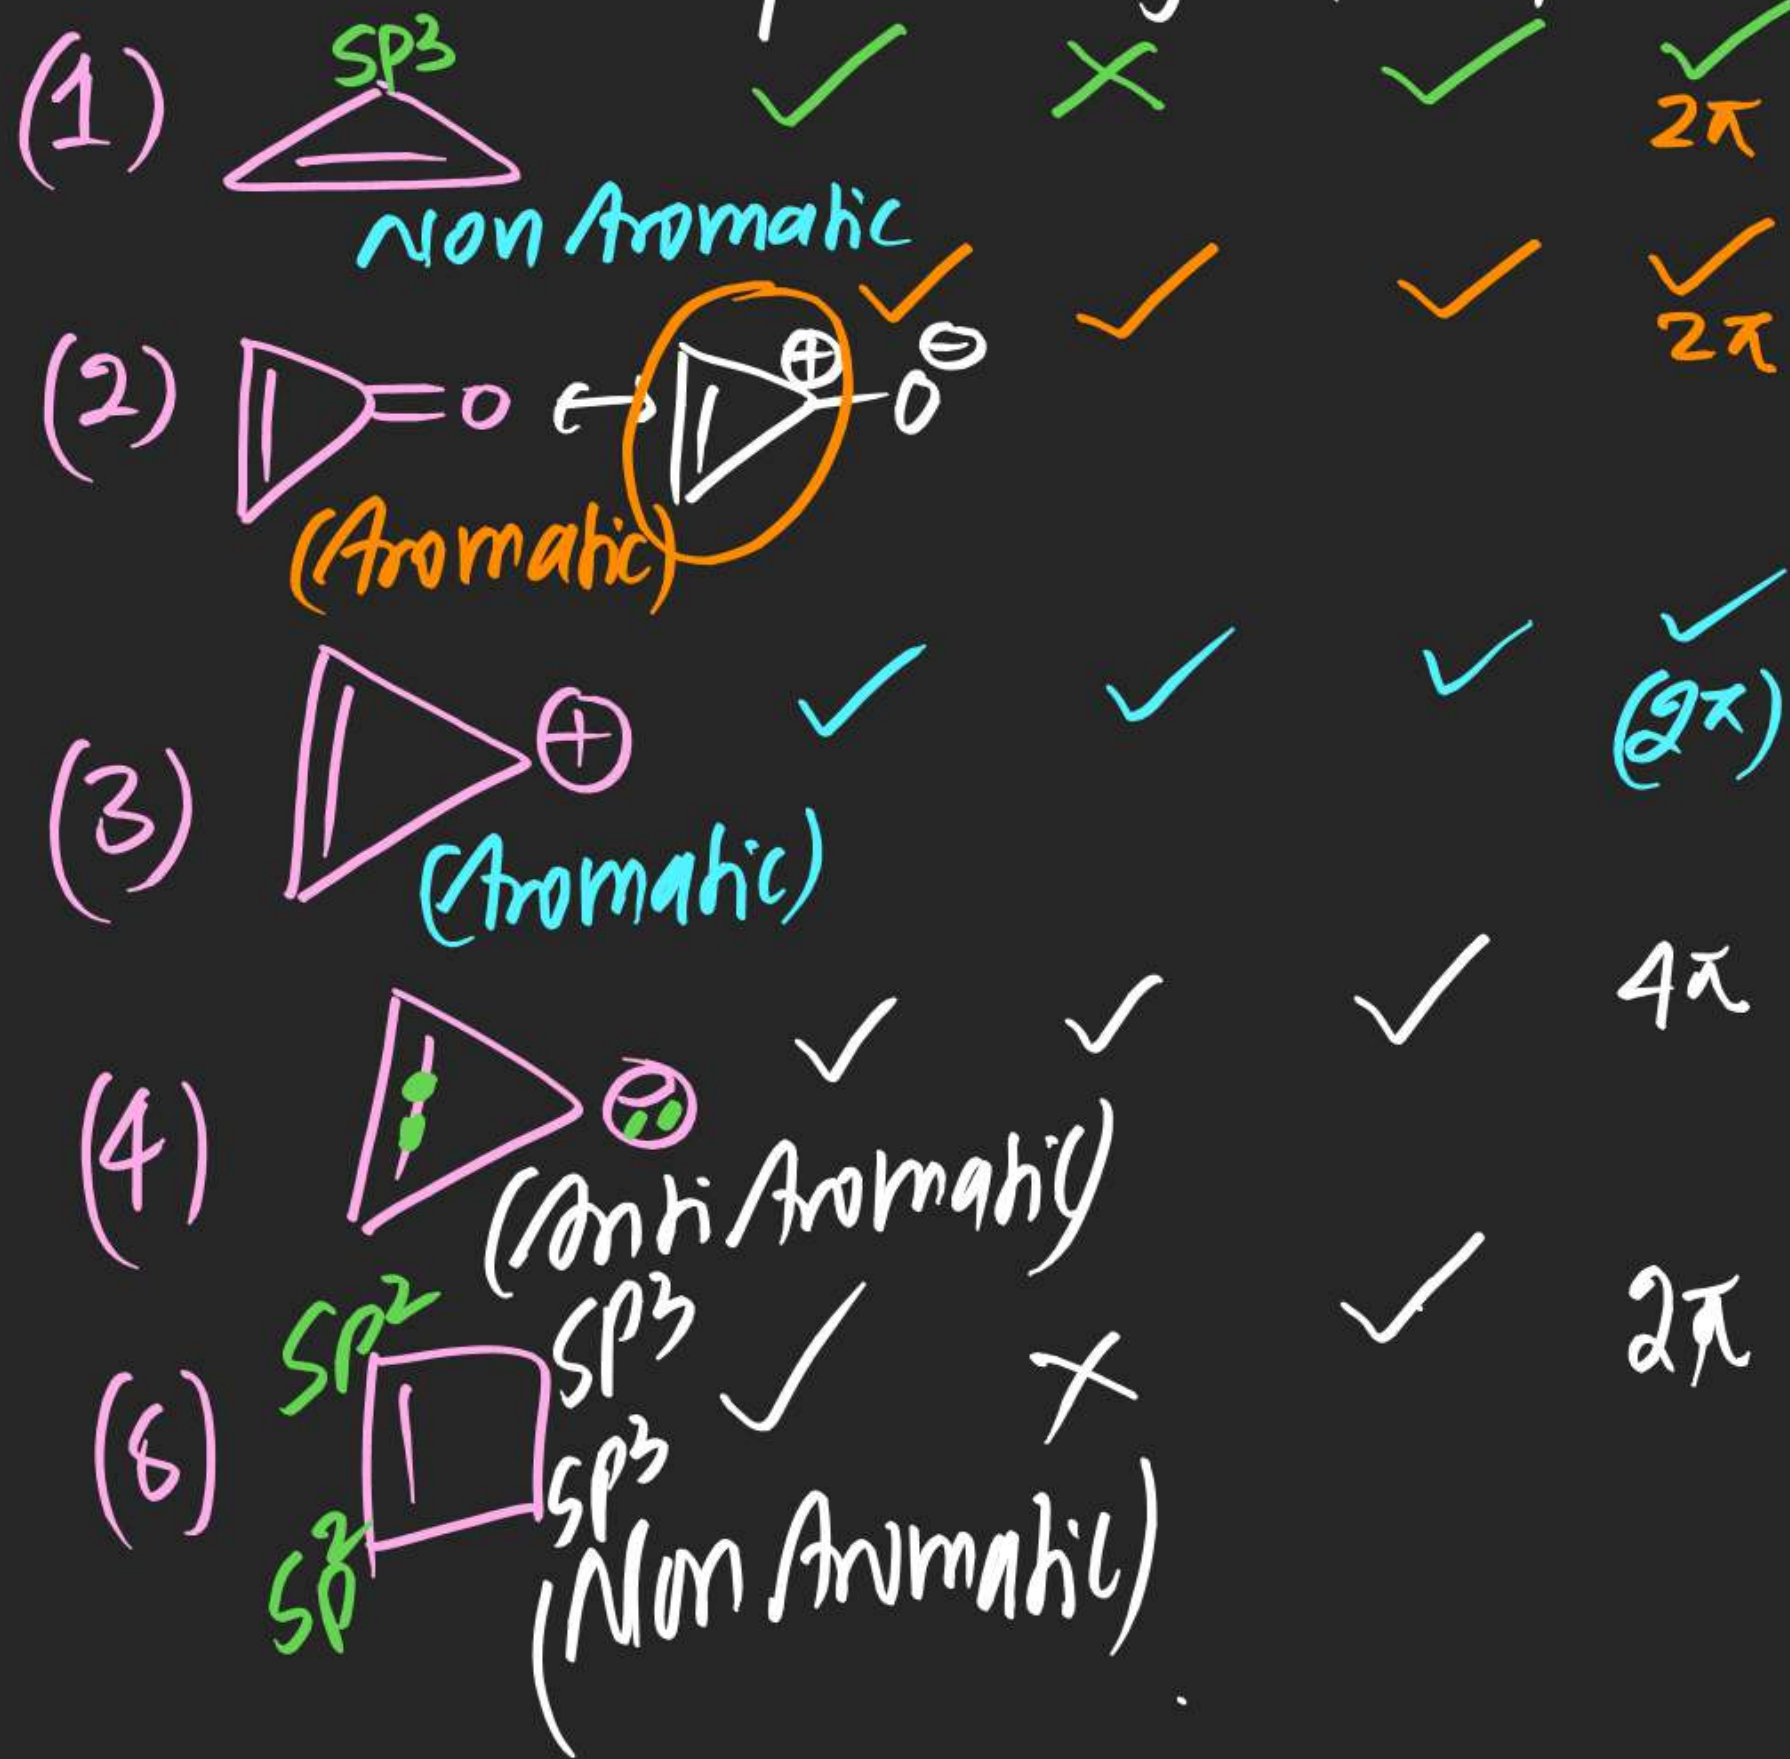 (1) SP³ ✓ × ✓ ✓
2π
Non Aromatic
(2) =O ↔ ⊕ –O ⊖ ✓ ✓ ✓ ✓
2π
(Aromatic)
(3) ⊕ ✓ ✓ ✓ ✓
(2π)
(Aromatic)
(4) ⊖ ✓ ✓ ✓ 4π
(Anti Aromatic)
SP² SP³ ✓ × ✓ 2π
SP² SP³
(Non Aromatic)